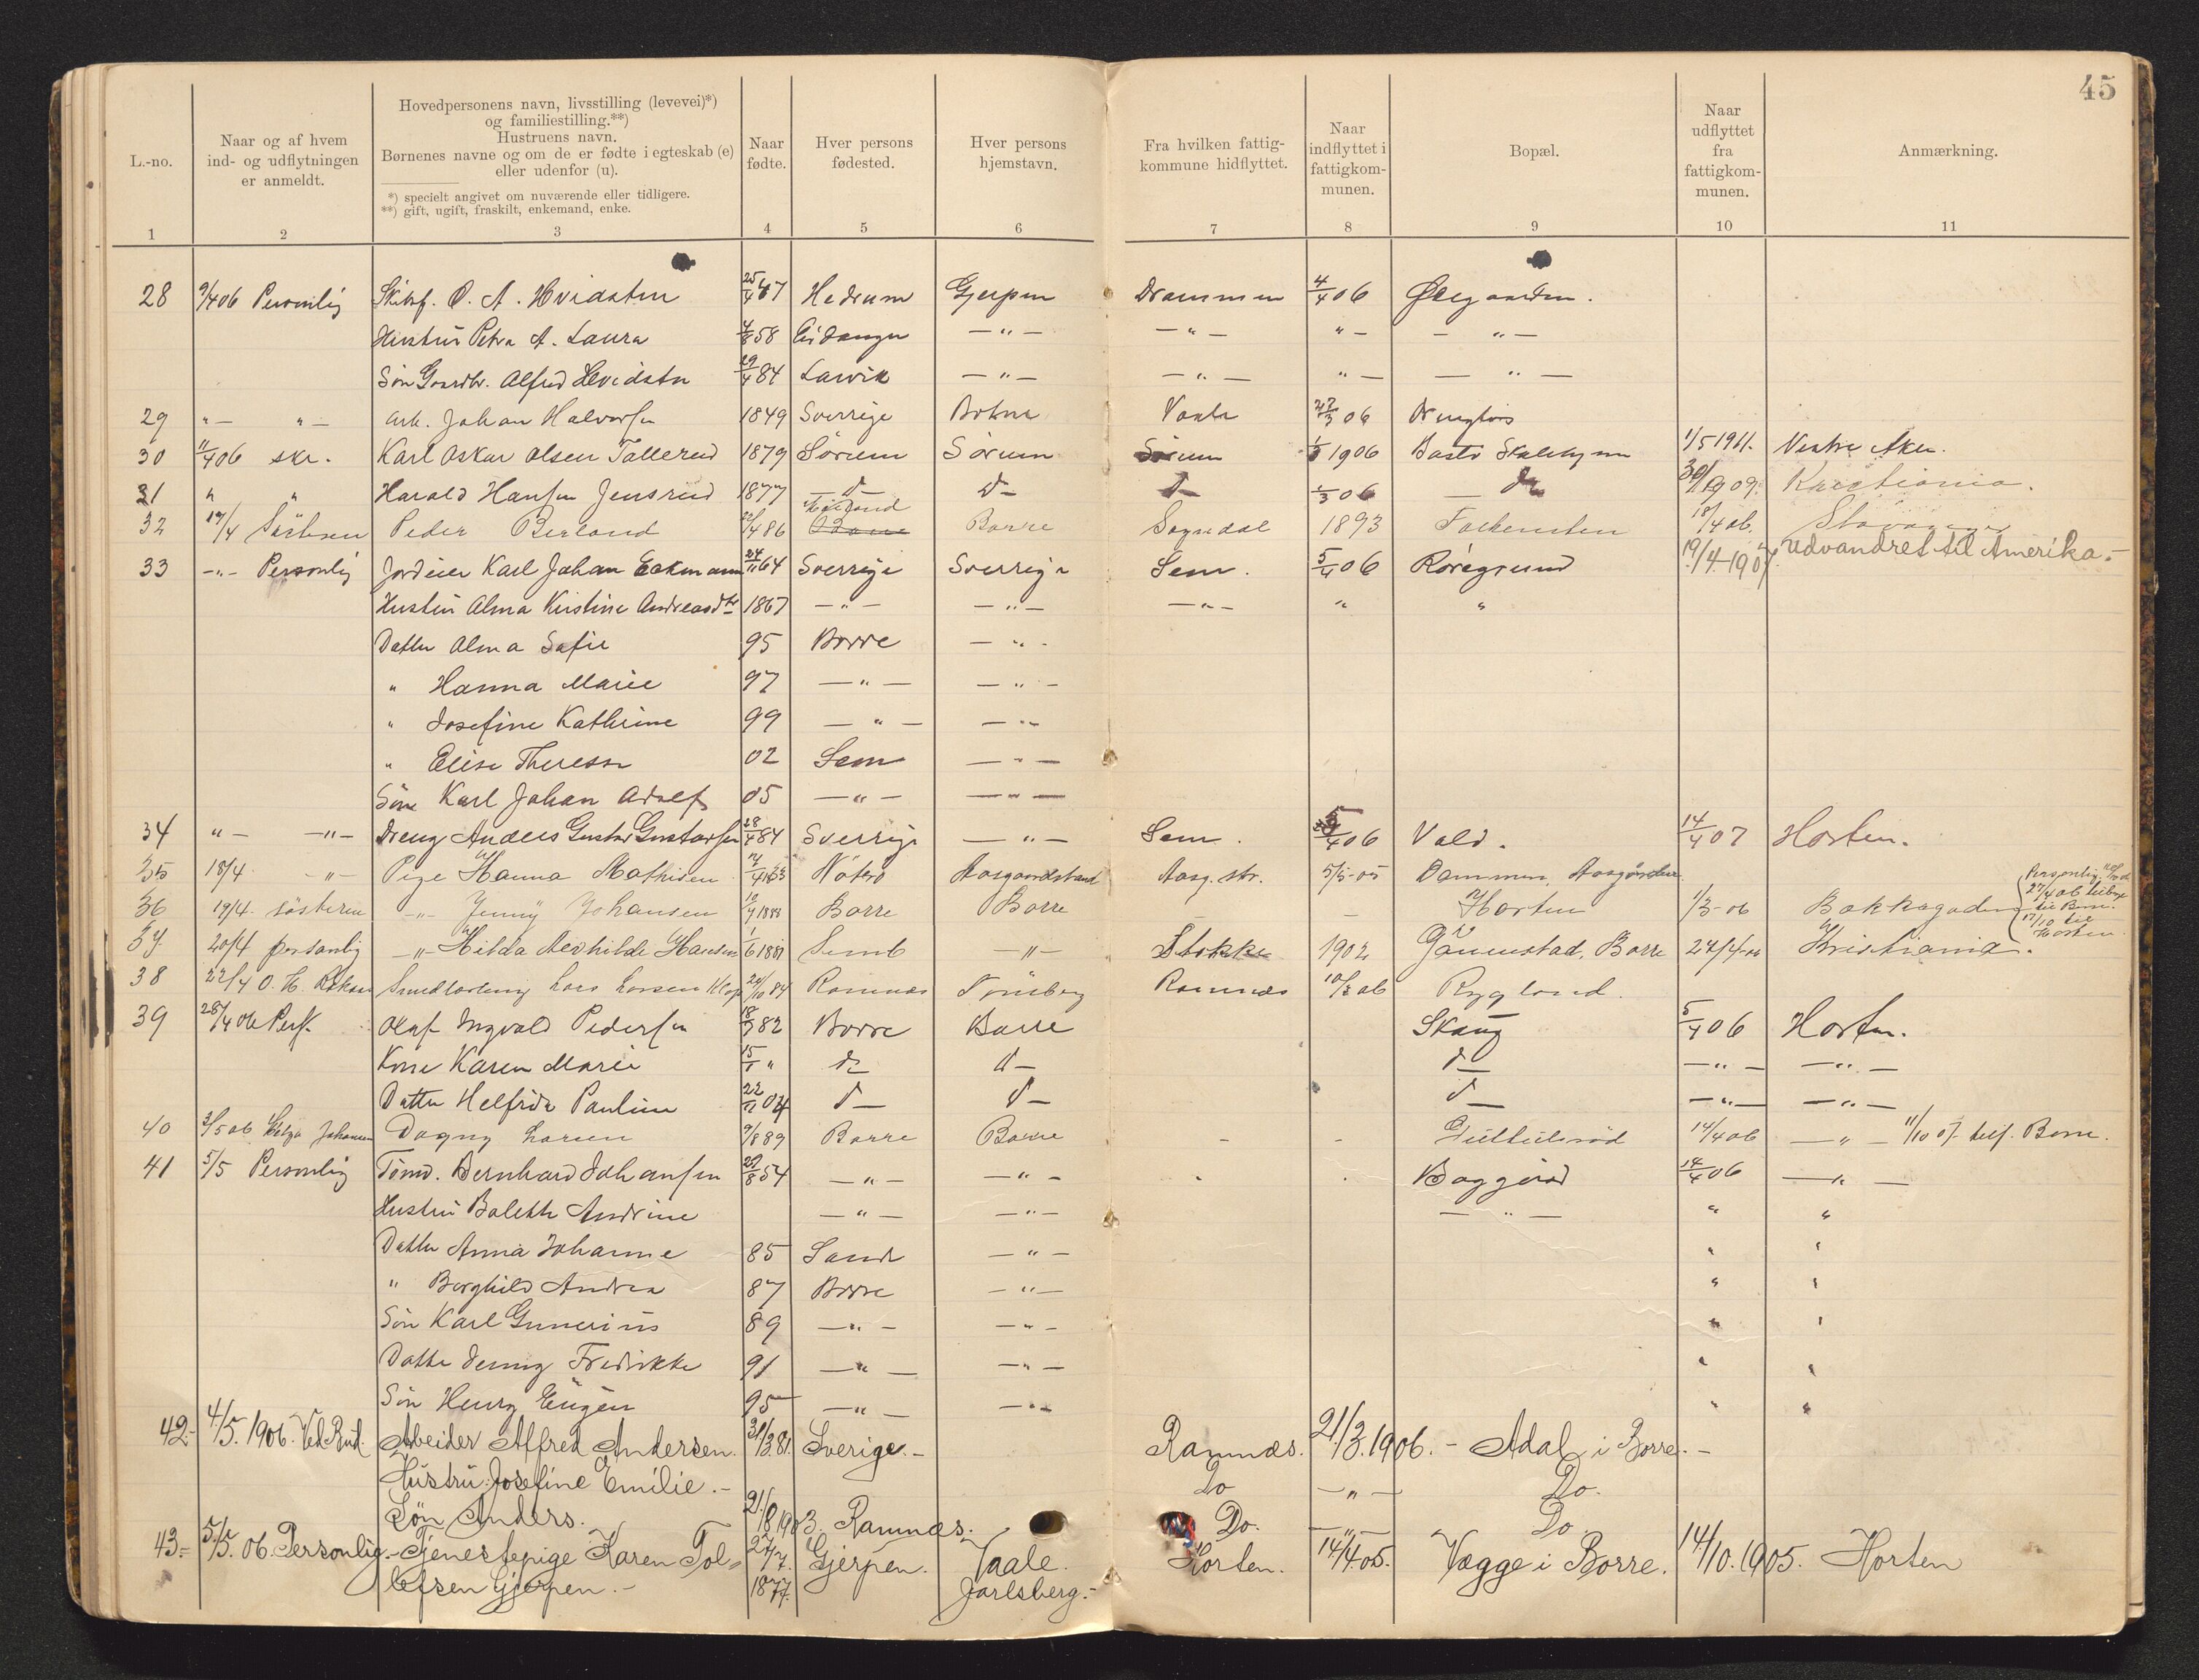 45
L.-no.
Naar og af hvem
ind- og udflytningen
er anmeldt.
Hovedpersonens navn, livsstilling (levevei)*)
og familiestilling.**)
Hustruens navn.
Børnenes navne og om de er fødte i egteskab (e)
eller udenfor (u).
*) specielt angivet om nuværende eller tidligere.
**) gift, ugift, fraskilt, enkemand, enke.
Naar
fødte.
Hver persons
fødested.
Hver persons
hjemstavn.
Fra hvilken fattig-
kommune hidflyttet.
Naar
indflyttet i
fattigkom-
munen.
Bopæl.
Naar
udflyttet
fra
fattigkom-
munen.
Anmærkning.
1 2 3 4 5 6 7 8 9 10 11
28 9/4 06 Personlig Skibsf. O. A. Hvidsten 25/4 67 Hedrum Gjerpen Drammen 4/4 06
Hustru Petra A. Laura 58 Eidanger —"— —"— "— —"—
Søn Alfred Hvidsten 29/4 84 Larvik —"— —"— "— —"—
29 "— "— Arb. Johan Halvorsen 1849 Sverrige Botne Vaale 27/3 06
30 11/4 06 skr. Karl Oskar Olsen Tallerud 1879 Sørum Sørum Sørum 1906 Bastø 1/5 1911. Vestre Aker.
31 " " Harald Hansen Jensrud 1877 d— d— d— 1/3 06 09. Kristiania.
32 17/4 Peder Berland 86 Borre Sogndal 1893 Falkensten 18/4 06
33 -"- Personlig Jordeier Karl Johan Eckmann 24/11 64 Sverrige Sverrige Sem. 5/4 06 Røregrund 19/4 1907. Udvandret til Amerika.-
Hustru Alma Kirstine Andreasdtr 1867 —"— —"— —"— " "
Datter Alma Sofie 95 Borre —"-
" Hanna Marie 97 —"— —"—
" Josefine Kathrine 99 —"— —"-
" Elise Therese 02 Sem —"—
Søn Karl Johan Adolf 05 —"— —"—
34 "— —"— Dreng Anders Gustav Gustavsen 28/4 84 Sverrige —"— Sem. 06 Vold. 14/4 07 Horten.
35 18/4 —"— Pige Hanna Mathisen Nøterø Aasgaardstrand Aasg. str. 5/5-05 Dammen,
36 19/4. søsteren —"— Jenny Johansen 1888 Borre Borre — Horten 1/5-06 Bakkegaden
37 20/4 personlig —"— Hilda Hansen 1/6 1881 Semb —"— Stokke 1902 Gannestad, Borre 27/4-06 Kristiania.
38 22/4 Lars Larsen 84 Ramnæs Tønsberg Ramnæs 06 Rygland.
39 28/4 06 Pers. Olaf Ingvald Pedersen 82 Borre Borre Skaug 5/4 06 Horten.
Kone Karen Marie 15 " do d— d— —"— —"—
Datter Helfrida Pauline 22 04 d— d— d— —"— —"—
40 3/5 06 Helga Johansen Dagny Larsen 9/8 89 Borre Borre - - 14/4 06 —"— 11/10 07 Borre.
41 5/5 Personlig Tømd. Bernhard Johansen 54 —"— —"— - - Baggerød 14/4 06 —"—
Hustru Balethe Andrine —"— —"— —"— " "
Datter Anna Johanne 85 Sande —"— " "
" Borghild Andrea 87 Borre —"— " "
Søn Karl Gunerius 89 —"— —"— " "
Datter Jenny Fredrikke 91 —"— —"— " "
Søn Henry Eugen 95 —"— —"— " "
42.- 4/5. 1906. Ved Bud. Arbeider Alfred Andersen. 81. Sverige.- Ramnæs. 21/3. 1906.- Adal i Borre.-
Hustru: Josefine Emilie.- Do —"— Do.
Søn Anders. 21/8 1903. Ramnæs. Do. —"— Do
43.- 5/5. 06. Personlig.- Tjenestepige Karen Tol= 27/7. Gjerpen. Vaale. Horten. 14/4. 05. Vægge i Borre. 14/10. 1905. Horten
lefsen Gjerpen.- 1877. Jarlsberg.-